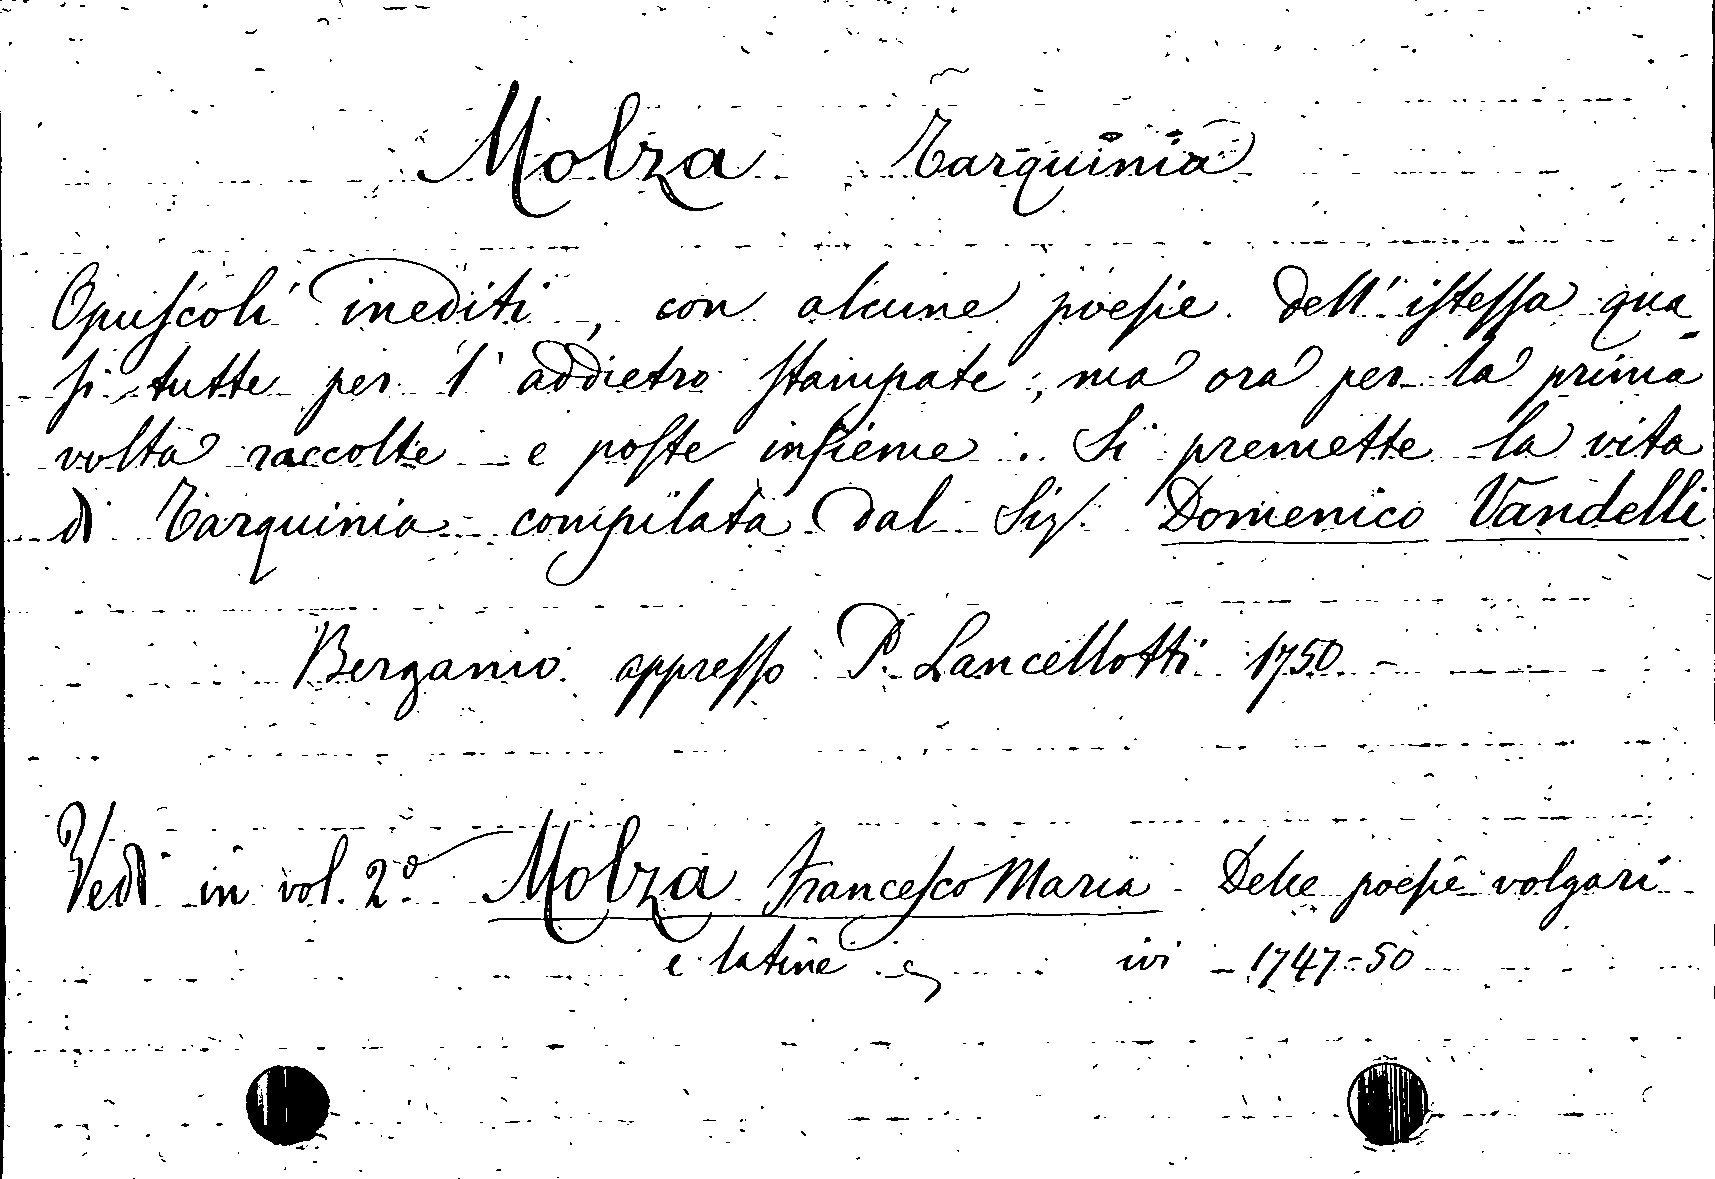 Molza Tarquinia
Opuscoli inediti, con alcune poesie dell'istessa qua-
si tutte per l'addietro stampate; ma ora per la prima
volta raccolte e poste insieme. Si premette la vita
di Tarquinia compilata dal Sig. Domenico Vandelli
Bergamo appresso P. Lancellotti 1750
Vedi in vol. 2º Molza Francesco Maria Delle poesie volgari
e latine ivi 1747-50